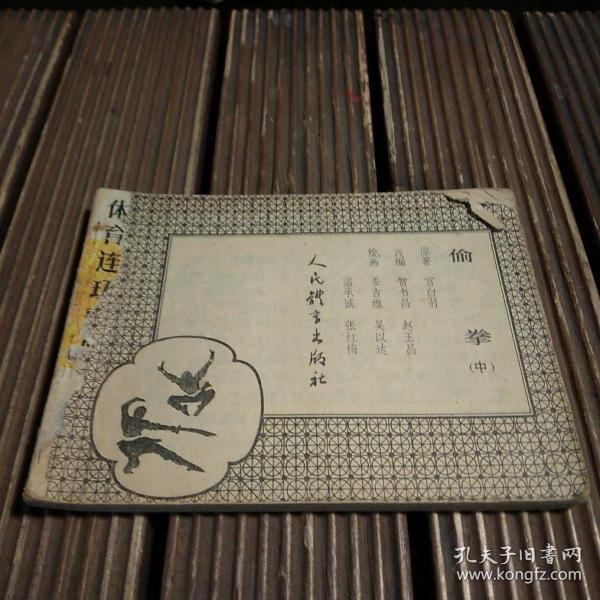 体育连环画
偷拳
(中)
原著 宫白羽
改编 智书昌 赵玉昌
绘画 姜吉维 吴以达
温承诚 张红梅
人民体育出版社
孔夫子旧书网
www.kongfz.com